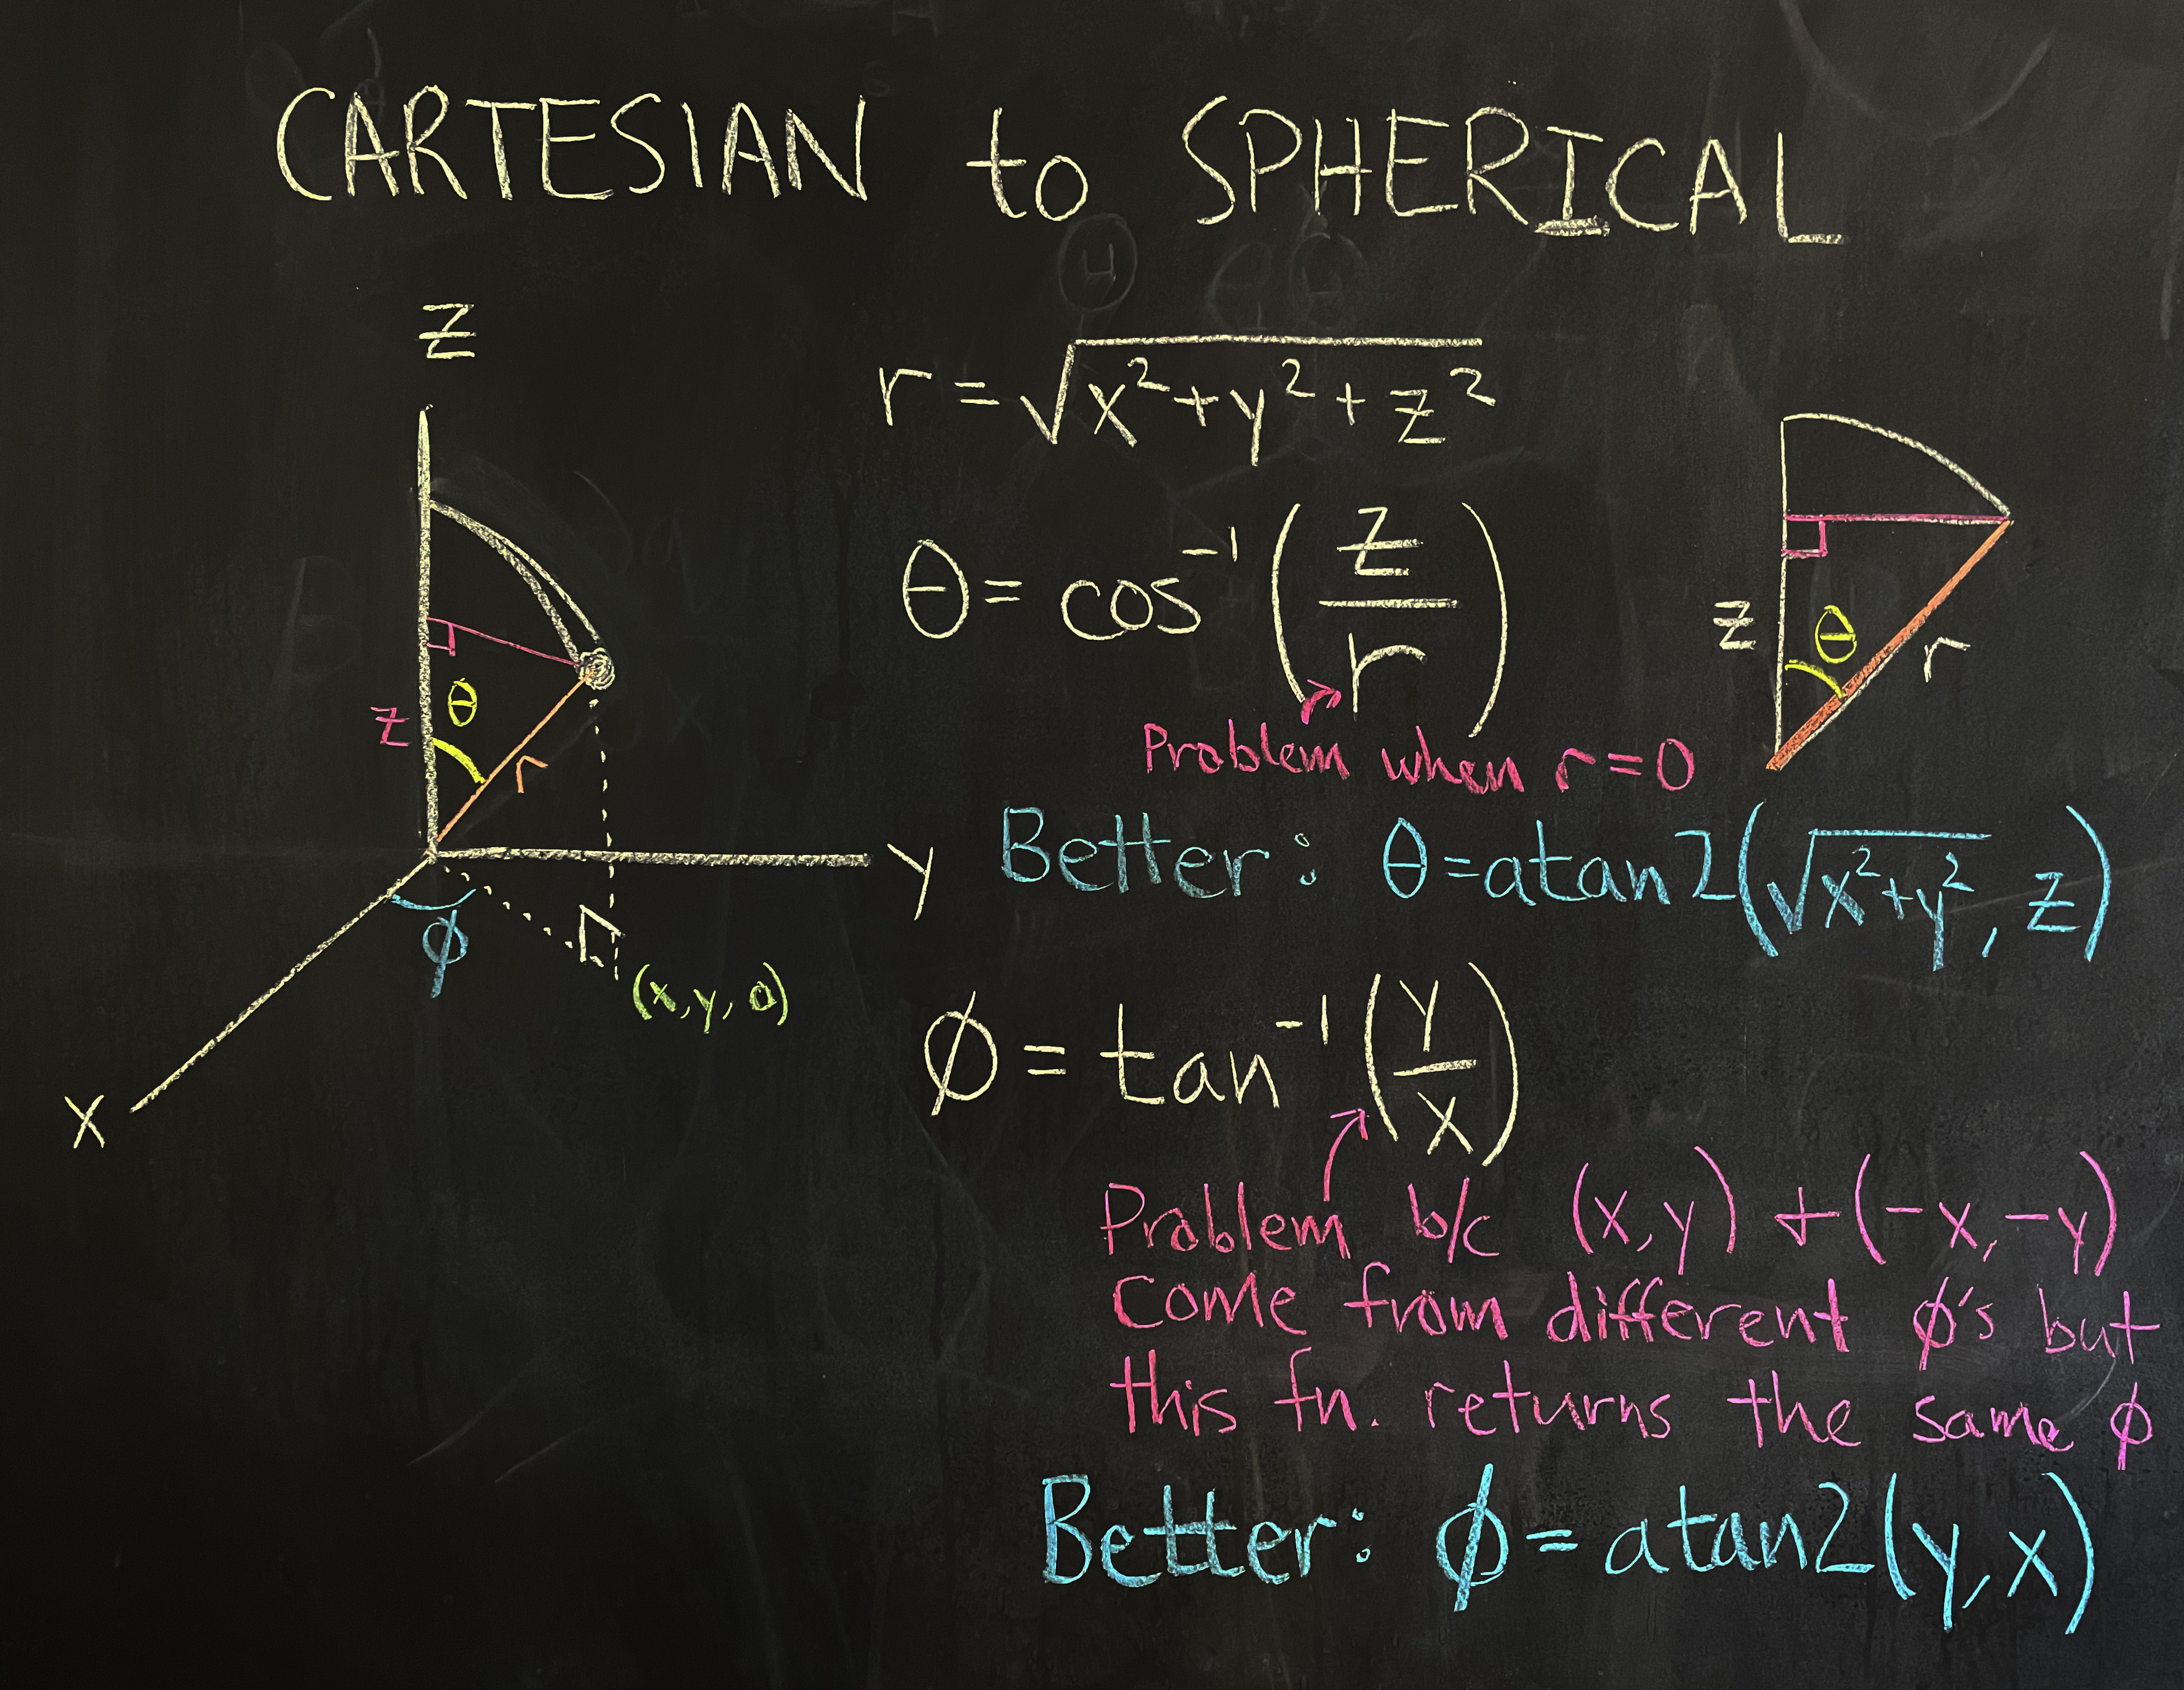 CARTESIAN to SPHERICAL
z
r = √x²+y²+z²
θ = cos⁻¹(z/r)
Problem when r=0
z
θ
r
z
θ
r
y
x
ϕ
(x,y,0)
Better: θ=atan2(√x²+y², z)
ϕ = tan⁻¹(y/x)
Problem b/c (x,y) + (-x,-y)
come from different ϕ's but
this fn. returns the same ϕ
Better: ϕ = atan2(y,x)